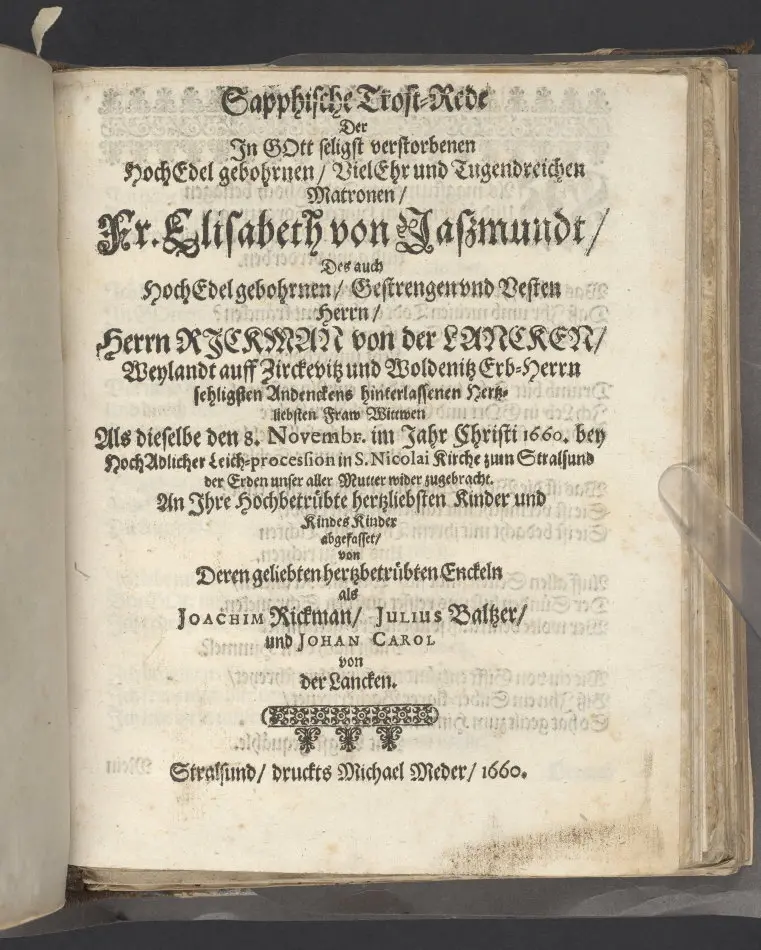 Sapphische Trost-Rede
Der
In GOtt seligst verstorbenen
HochEdel gebohrnen / VielEhr und Tugendreichen
Matronen /
Fr. Elisabeth von Jaßmundt /
Des auch
HochEdelgebohrnen / Gestrengen vnd Vesten
Herrn /
Herrn RICKMAN von der LANCKEN /
Weylandt auff Zirckevitz und Woldenitz Erb-Herrn
sehligsten Andenckens hinterlassenen Hertz-
liebsten Fraw Wittwen
Als dieselbe den 8. Novembr. im Jahr Christi 1660. bey
HochAdlicher Leich-procession in S. Nicolai Kirche zum Stralsund
der Erden unser aller Mutter wider zugebracht.
An Ihre Hochbetrübte hertzliebsten Kinder und
Kindes Kinder
abgefasset /
von
Deren geliebten hertzbetrübten Enckeln
als
JOACHIM Rickman / JULIUS Baltzer /
und JOHAN CAROL
von
der Lancken.
Stralsund / druckts Michael Meder / 1660.